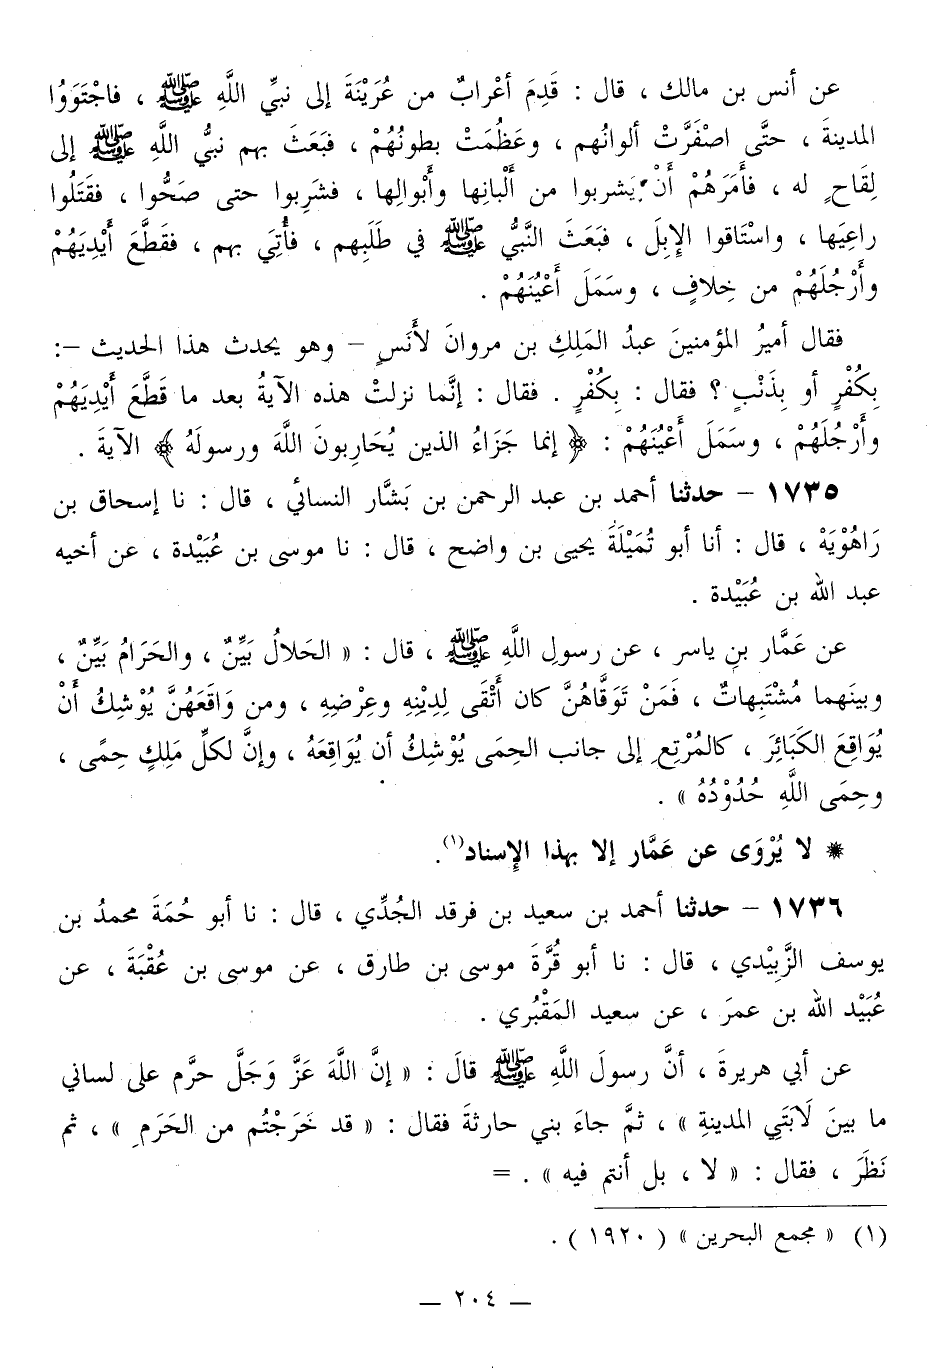 عن أنس بن مالك ، قال : قَدِمَ أعْرابٌ من عُرَيْنَةَ إلى نبيِّ اللَّهِ ﷺ ، فاجْتَوَوُا
المدينةَ ، حتَّى اصْفَرَّتْ ألوانُهم ، وعَظُمَتْ بطونُهُمْ ، فبَعَثَ بهم نبيُّ اللَّهِ ﷺ إلى
لِقَاحٍ له ، فأمَرَهُمْ أنْ يَشربوا من ألْبانِها وأبْوالِها ، فشَرِبوا حتى صَحُّوا ، فقَتَلُوا
راعِيَها ، واسْتَاقوا الإِبِلَ ، فبَعَثَ النَّبيُّ ﷺ في طَلَبِهم ، فأُتِيَ بهم ، فقَطَّعَ أَيْدِيَهُمْ
وأَرْجُلَهُمْ من خِلافٍ ، وسَمَلَ أَعْيُنَهُمْ .
فقال أميرُ المؤمنينَ عبدُ المَلِكِ بن مروانَ لأَنَسٍ – وهو يحدث هذا الحديث –:
بِكُفْرٍ أو بِذَنْبٍ ؟ فقال : بِكُفْرٍ . فقال : إنَّما نزلتْ هذه الآيةُ بعد ما قَطَّعَ أَيْدِيَهُمْ
وأَرْجُلَهُمْ ، وسَمَلَ أَعْيُنَهُمْ : ﴿ إنما جَزَاءُ الذين يُحَارِبونَ اللَّهَ ورسولَهُ ﴾ الآيةَ .
١٧٣٥ – حدثنا أحمد بن عبد الرحمن بن بَشَّار النسائي ، قال : نا إسحاق بن
رَاهُوْيَهْ ، قال : أنا أبو تُمَيْلَةَ يحيى بن واضح ، قال : نا موسى بن عُبَيْدة ، عن أخيه
عبد الله بن عُبَيْدة .
عن عَمَّار بنِ ياسر ، عن رسولِ اللَّهِ ﷺ ، قال : « الحَلالُ بَيِّنٌ ، والحَرَامُ بَيِّنٌ ،
وبينَهما مُشْتَبِهاتٌ ، فَمَنْ تَوَقَّاهُنَّ كان أتْقَى لِدِيْنِهِ وعِرْضِهِ ، ومن وَاقَعَهُنَّ يُوْشِكُ أَنْ
يُوَاقِعَ الكَبَائِرَ ، كالمُرْتِعِ إلى جانب الحِمَى يُوْشكُ أن يُوَاقِعَهُ ، وإنَّ لكلِّ مَلِكٍ حِمًى ،
وحِمَى اللَّهِ حُدُوْدُهُ » .
* لا يُرْوَى عن عَمَّار إلا بهذا الإِسناد(١).
١٧٣٦ – حدثنا أحمد بن سعيد بن فرقد الجُدِّي ، قال : نا أبو حُمَةَ محمدُ بن
يوسف الزَّبِيْدي ، قال : نا أبو قُرَّةَ موسى بن طارق ، عن موسى بن عُقْبَةَ ، عن
عُبَيْد الله بن عمرَ ، عن سعيد المَقْبُري .
عن أبي هريرةَ ، أنَّ رسولَ اللَّهِ ﷺ قالَ : « إنَّ اللَّهَ عَزَّ وَجَلَّ حرَّم على لساني
ما بينَ لَابَتَيِ المدينةِ » ، ثمَّ جاءَ بني حارثةَ فقال : « قد خَرَجْتُم من الحَرَمِ » ، ثم
نَظَرَ ، فقال : « لا ، بل أنتم فيه » . =
(١) « مجمع البحرين » ( ١٩٢٠ ) .
— ٢٠٤ —